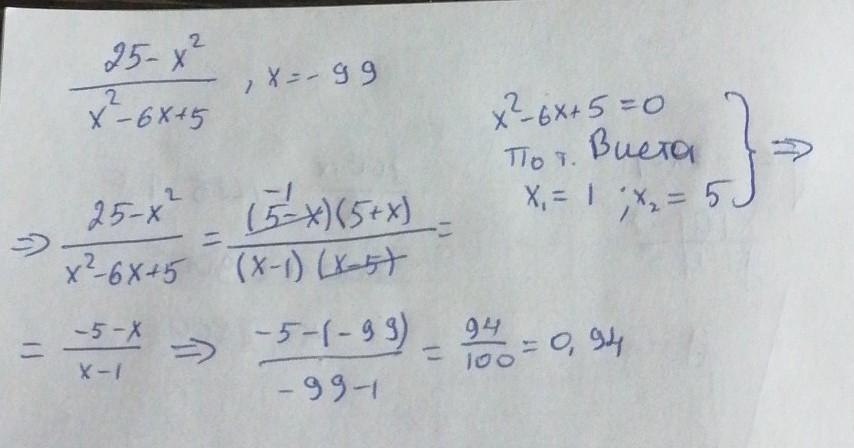 25-x²/x²-6x+5 , x=-99
x²-6x+5=0
По т. Виета
x₁= 1 ; x₂= 5 } ⇒
⇒ 25-x²/x²-6x+5 = (5-x)⁻¹(5+x)/(x-1)(x-5) =
= -5-x/x-1 ⇒ -5-(-99)/-99-1 = 94/100 = 0,94